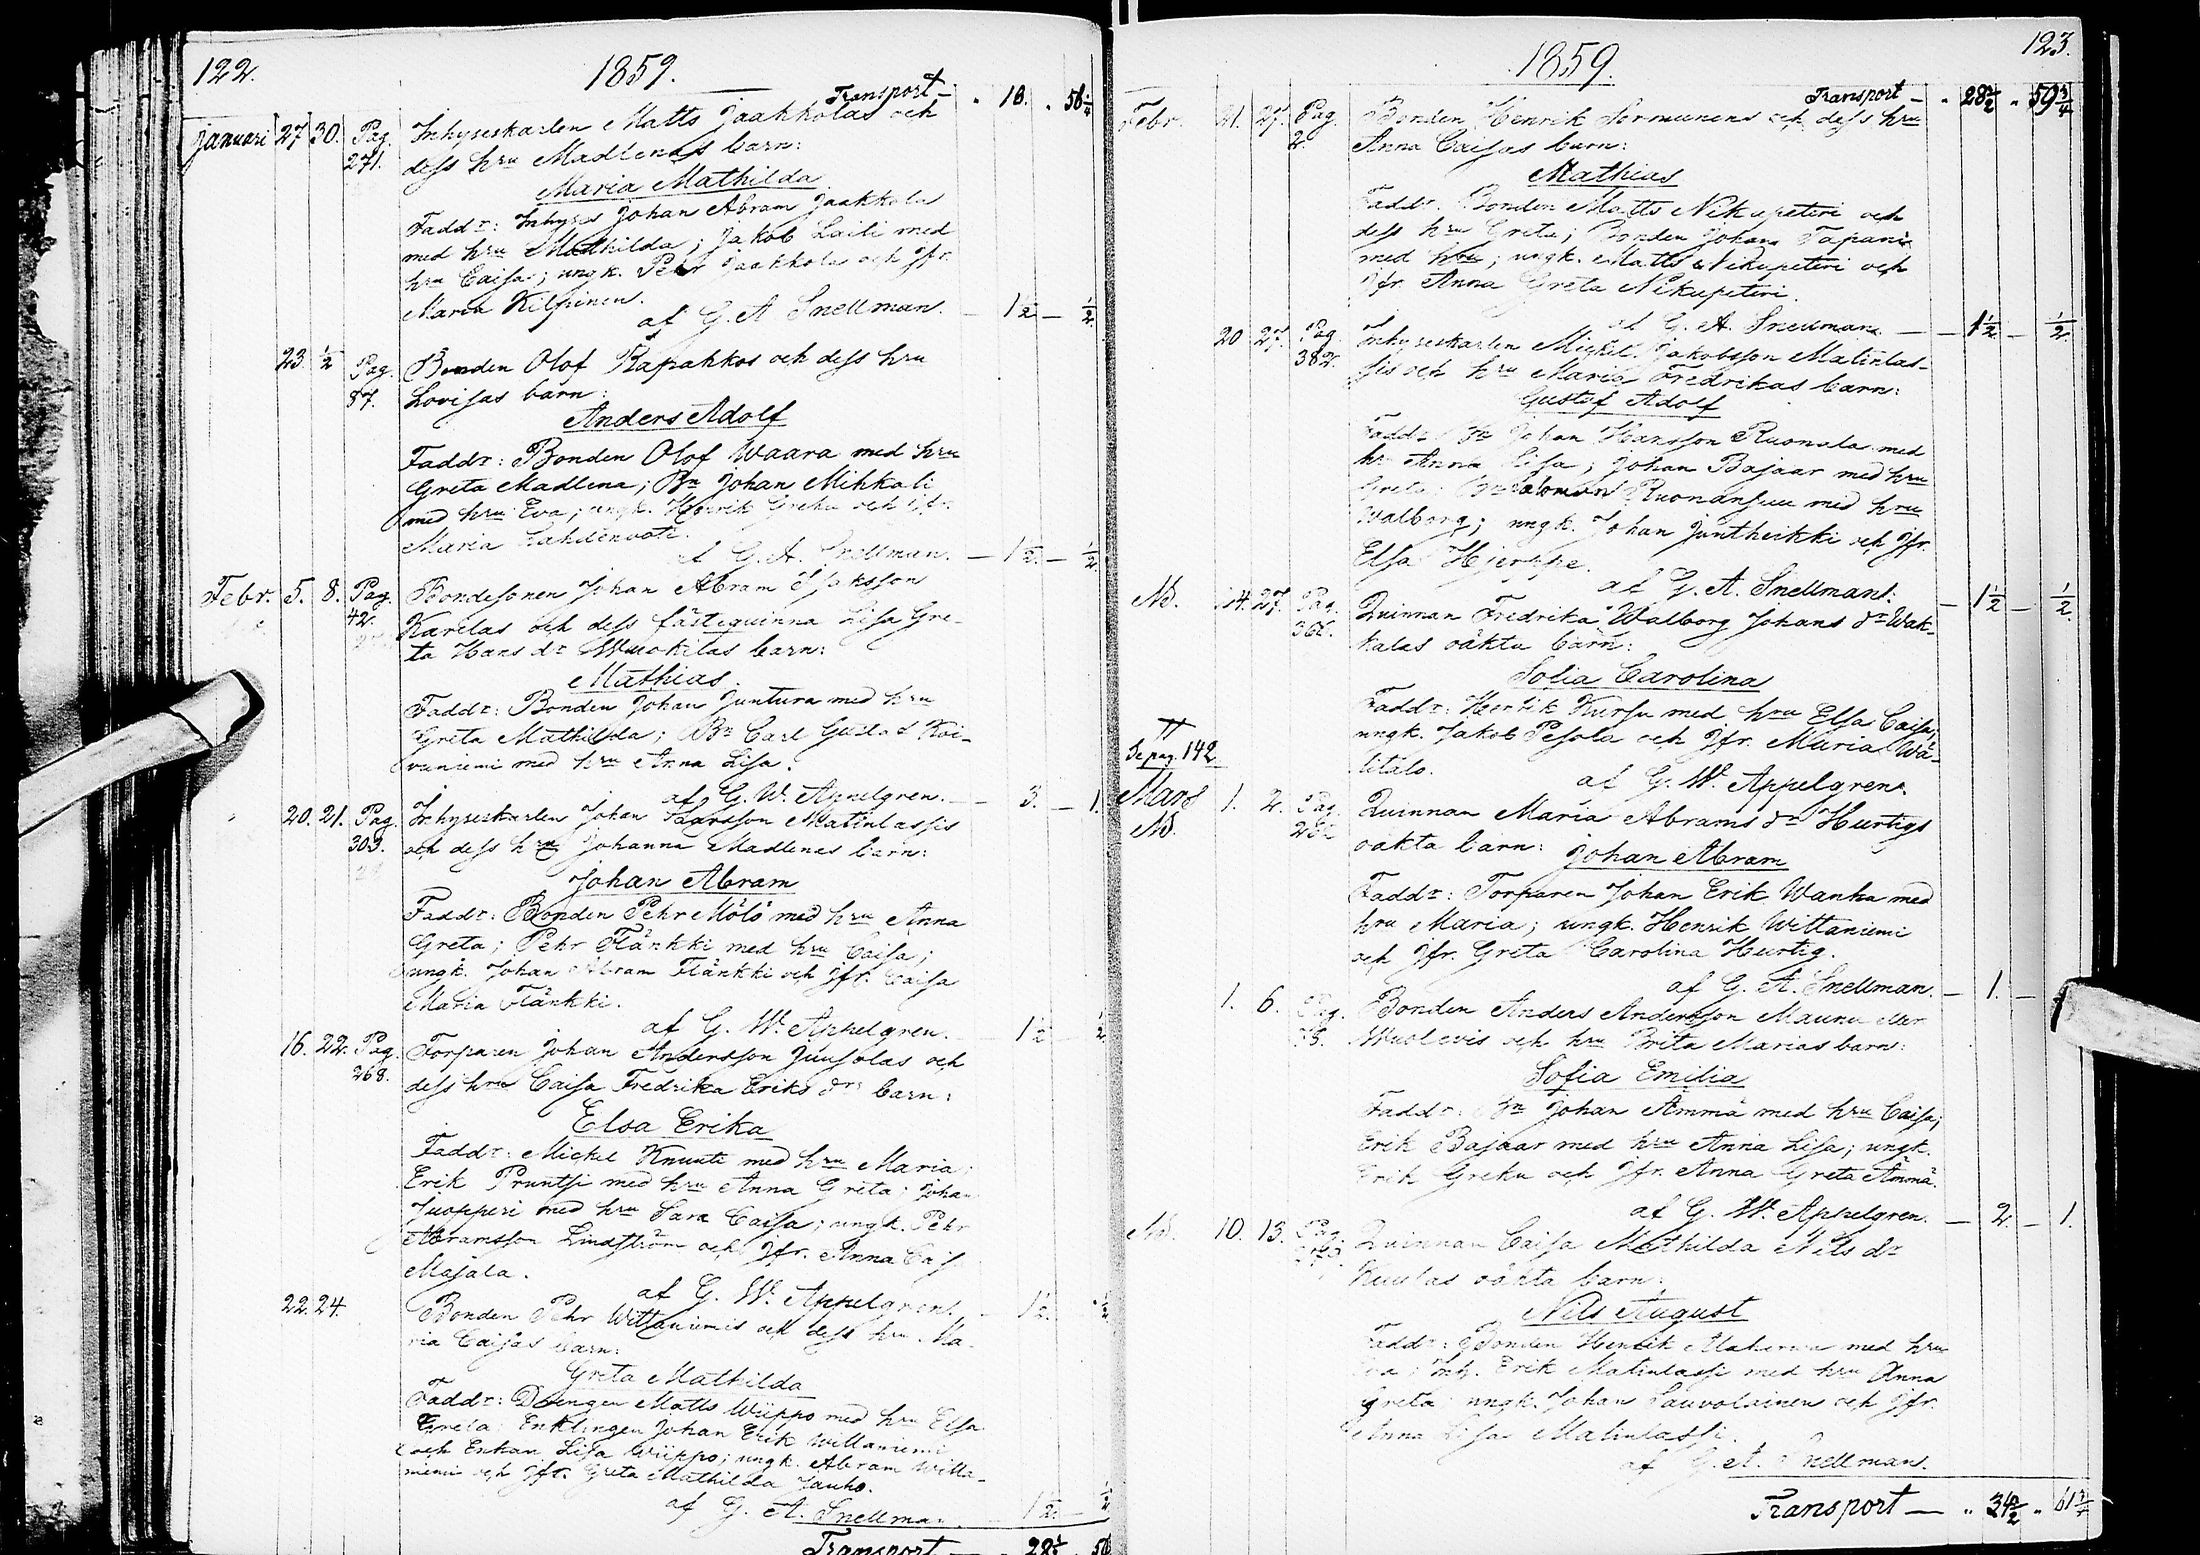 122. 1859.
Transport — " 18. " 58 1/4
Januari 27 30. Pag. 271. Inhyseskarlen Matts Jaakkolas och
dess hru Madlenas barn:
Maria Mathilda
Faddr: Inhyses Johan Abram Jaakkola
med hru Mathilda; Jakob Laili med
hru Caisa; ungk. Pehr Jaakkolas och Jfr.
Maria Kilpinen.
af G. A Snellman. — 1 1/2 — 1/2.
23 1/2 Pag. 87. Bonden Olof Kapakkos och dess hru
Lovisas barn:
Anders Adolf
Faddr: Bonden Olof Waara med hru
Greta Madlena; Bn Johan Mihkali
med hru Eva; ungk. Henrik Greku och Jfr.
Maria
af G. A. Snellman. — 1 1/2. — 1/2
Febr. 5. 8. Pag. 42. Bondesonen Johan Abram Isaksson
Karelas och dess fästequinna Lisa Gre-
ta Hans dr Wuokilas barn:
Mathias.
Faddr: Bonden Johan Juntura med hru
Greta Mathilda; Bn Carl Gustaf Koi-
vuniemi med hru Anna Lisa.
af G. W. Appelgren. — 3. — 1.
20. 21. Pag. 303. Inhyseskarlen Johan Matinlassis
och dess hru Johanna Madlenas barn:
Johan Abram
Faddr: Bonden Pehr Mölö med hru Anna
Greta; Pehr Flänkki med hru Caisa;
ungk. Johan Abram Flänkki och Jfr. Caisa
Maria Flänkki.
af G. W. Appelgren. 1 1/2 1/2
16. 22. Pag. 268. Torparen Johan Andersson Juusolas och
dess hru Caisa Fredrika Eriks drs barn:
Elsa Erika
Faddr: Mickel Knuuti med hru Maria;
Erik Pruntsi med hru Anna Greta; Johan
Juopperi med hru Sara Caisa; ungk. Pehr
Abramsson Lindström och Jfr. Anna Cais
Majala.
af G. W. Appelgren. — 1 1/2. " 1/2
22. 24. Bonden Pehr Wittaniemis och dess hru Ma-
ria Caisas barn:
Greta Mathilda
Faddr: Drengen Matts Wiippo med hru Elsa
Greta; Enklingen Johan Erik Wittaniemi
och Enkan Lisa Wiippo; ungk. Abram Witta-
niemi och Jfr. Greta Mathilda Jauho.
af G. A. Snellman. — 1 1/2 — 1/2
Transport — " 28 1/2
1859. 123.
Transport — " 28 1/2 " 59 3/4
Febr. 21. 27. Pag. 2. Bonden Henrik Sormunens och dess hru
Anna Caisas barn:
Mathias
Faddr. Bonden Matts Nikupeteri och
dess hru Greta; Bonden Johan Tapani
med hru; ungk. Matts Nikupeteri och
Jfr. Anna Greta Nikupeteri.
af G. A. Snellman. — 1 1/2 — 1/2
20 27. Pag. 382. Inhyseskarlen Mickel Jakobsson Matinlas-
sis och hru Maria Fredrikas barn:
Gustaf Adolf
Faddr: Bn Johan Hansson Ruonala med
hru Anna Lisa; Johan Bajaar med hru
Greta; Bn Salomon Ruonansuu med hru
Walborg; ungk. Johan Juntheikki och Jfr.
Elsa Hjerppe.
af G. A. Snellman. — 1 1/2 — 1/2.
Nb. 14. 27. Pag. Quinnan Fredrika Walborg Johans dr Wak-
kalas oäkta barn:
Sofia Carolina
Faddr: Henrik Kursu med hru Elsa Caisa;
ungk. Jakob Pesola och Jfr. Maria Wä-
litalo.
af G. W. Appelgren.
Se pag. 142
Mars 1. 2. Pag. Quinnan Maria Abrams dr Hurtigs
Nb. oäkta barn: Johan Abram
Faddr: Torparen Johan Erik Wanha med
hru Maria; ungk. Henrik Wittaniemi
och Jfr. Greta Carolina Hurtig.
af G. A. Snellman. — 1. —
1. 6. Pag. Bonden Anders Andersson Maunu eller
Wuolevis och hru Brita Marias barn:
Sofia Emilia
Faddr: Bn Johan Ämmä med hru Caisa;
Erik Bajaar med hru Anna Lisa; ungk.
Erik Greku och Jfr. Anna Greta Ämmä.
af G. W. Appelgren. — 2. — 1.
Nb. 10. 13. Pag. Quinnan Caisa Mathilda Nils dr
Kuulas oäkta barn:
Nils August
Faddr: Bonden Henrik med hru
Inh. Erik Matinlassi med hru Anna
Greta; ungk. Johan Sauvolainen och Jfr.
Anna Lisa Matinlassi.
af G. A. Snellman.
Transport — " 34 1/2 " 61 3/4